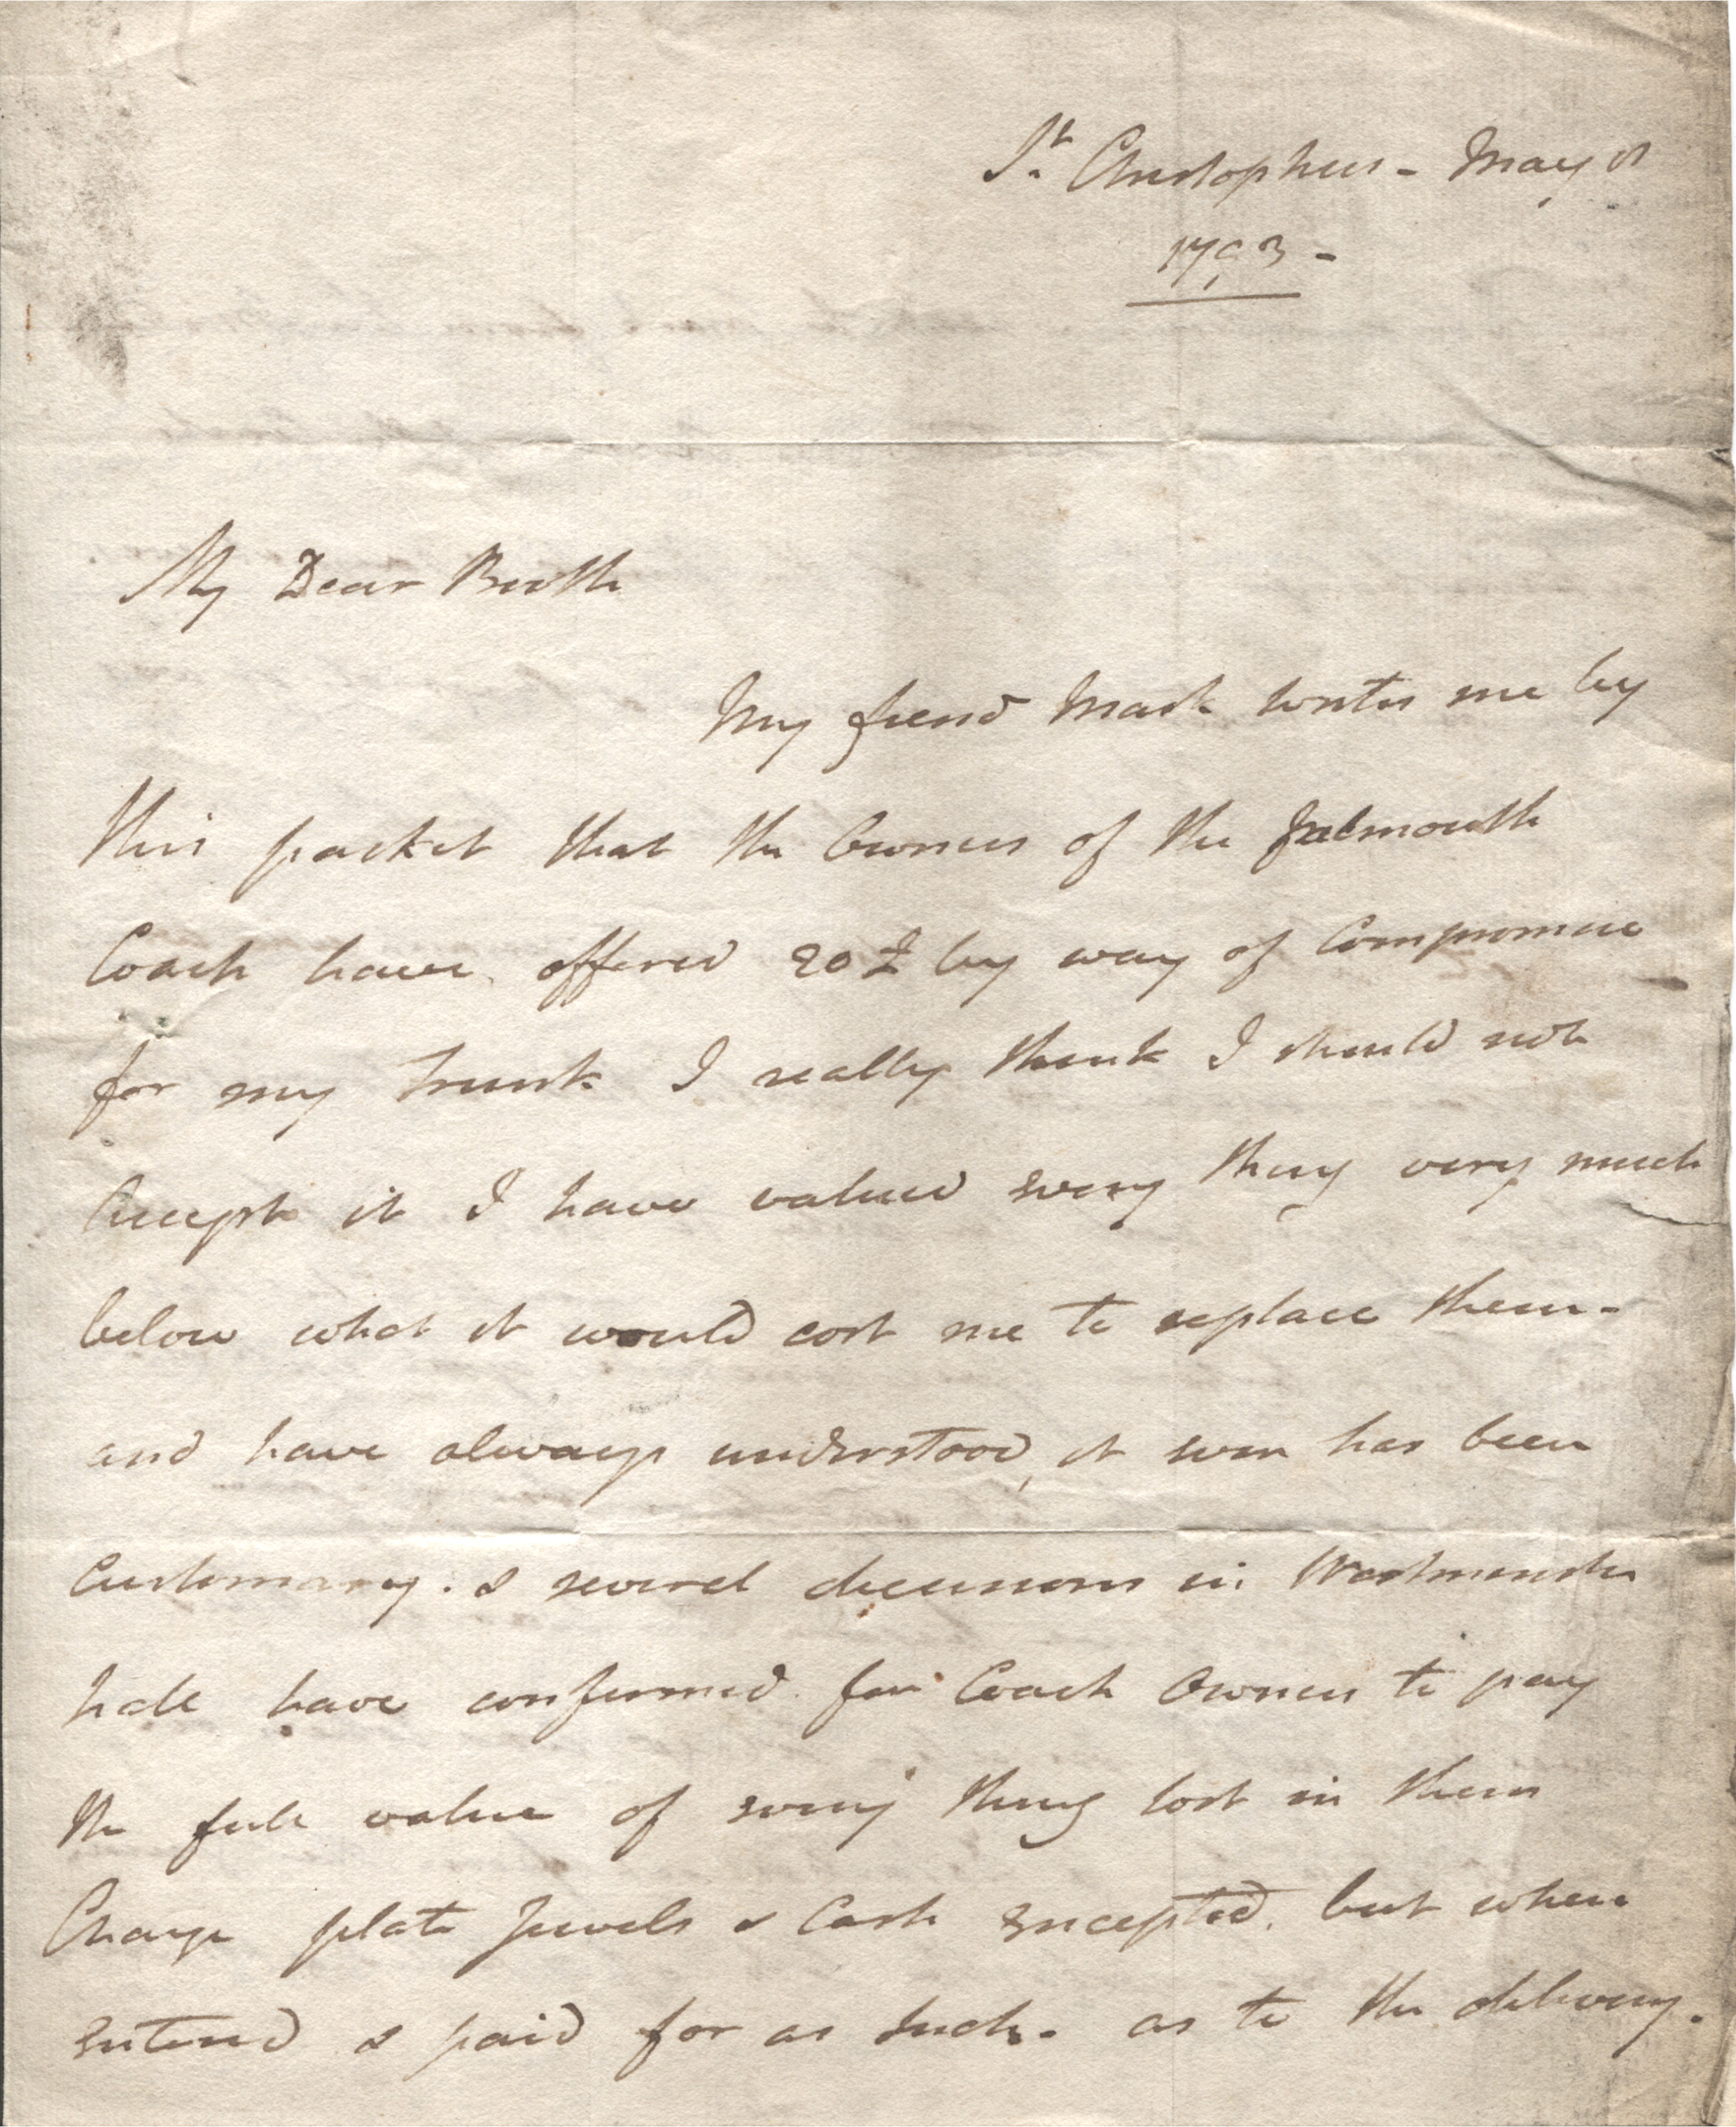 St. Christophers - May 8
1793 -
My Dear Booth
My friend Mark writes me by
this packet that the Owners of the Falmouth
Coach have offered 20£ by way of Compromise
for my Trunk I really think I should not
Accept it I have valued every thing very much
below what it would cost me to replace them -
and have always understood, it ever has been
Customary. & several decisions in Westminster
hall have confirmed. for Coach Owners to pay
the full value of every thing lost in their
Charge plate Jewels & Cash excepted. but when
entered & paid for as such. as to the delivery.